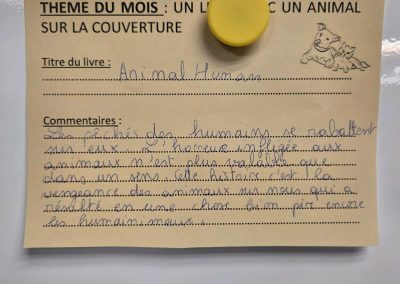 THEME DU MOIS : UN LI C UN ANIMAL
SUR LA COUVERTURE
Titre du livre : Animal Human
Commentaires :
Les péchés des humains se rabattent
sur eux. L'horreur infligée aux
animaux n'est plus valable que
dans un sens. Cette histoire c'est la
vengeance des animaux sur nous qui a
résulté en une chose bien pire encore
les humanimaux.